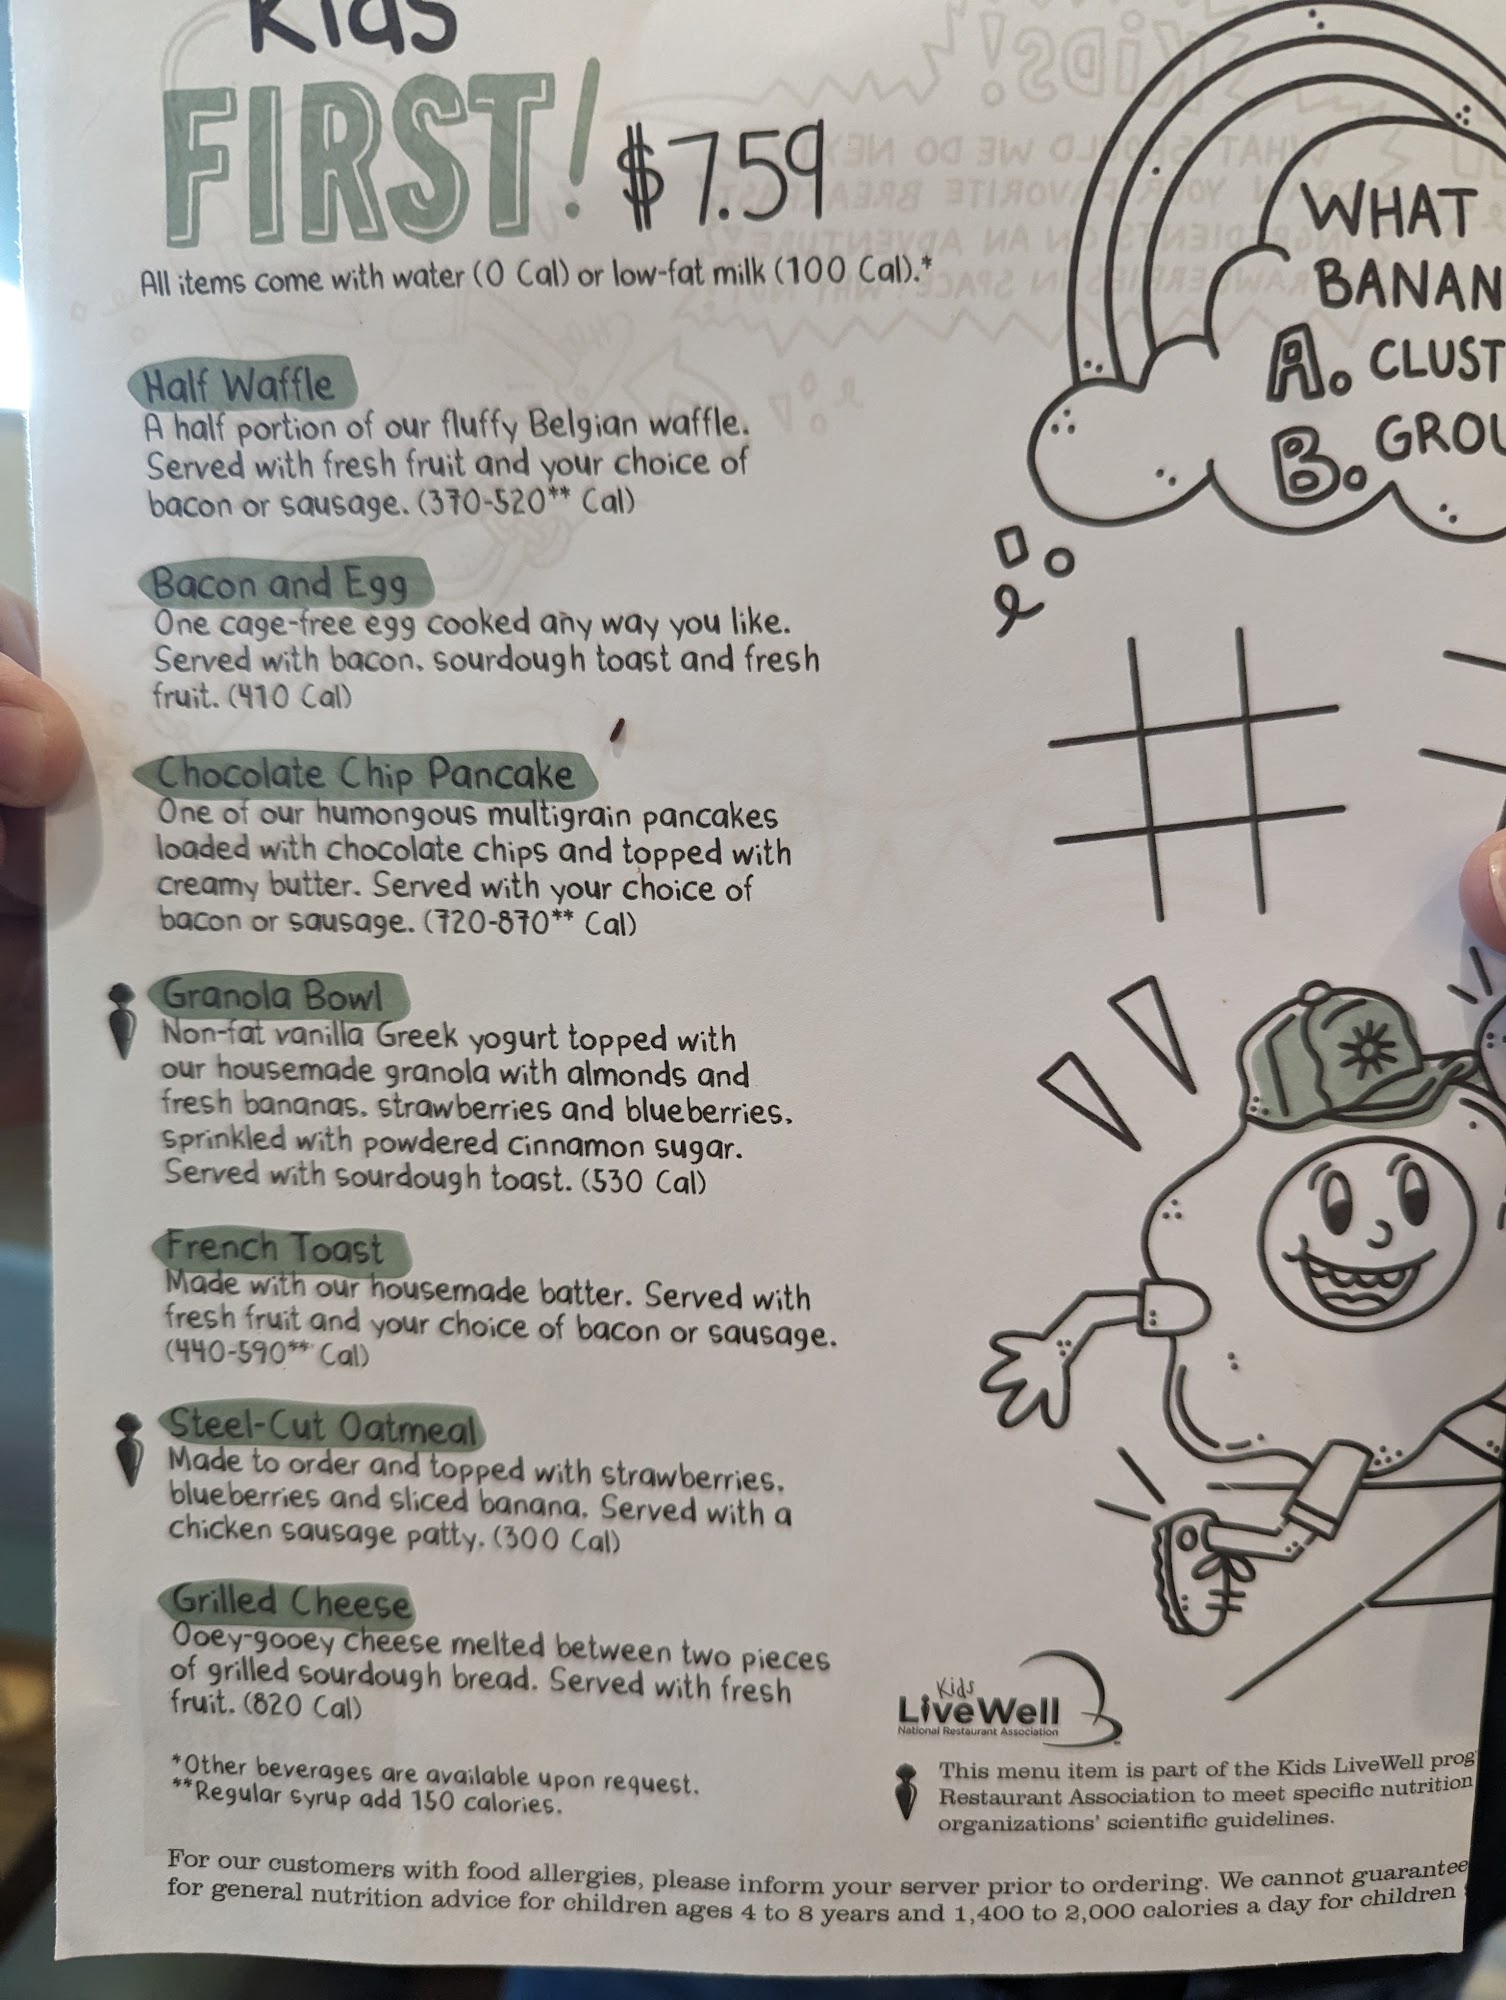 Kids
FIRST! $7.59
All items come with water (0 Cal) or low-fat milk (100 Cal).*
Half Waffle
A half portion of our fluffy Belgian waffle.
Served with fresh fruit and your choice of
bacon or sausage. (370-520** Cal)
Bacon and Egg
One cage-free egg cooked any way you like.
Served with bacon, sourdough toast and fresh
fruit. (410 Cal)
Chocolate Chip Pancake
One of our humongous multigrain pancakes
loaded with chocolate chips and topped with
creamy butter. Served with your choice of
bacon or sausage. (720-870** Cal)
Granola Bowl
Non-fat vanilla Greek yogurt topped with
our housemade granola with almonds and
fresh bananas, strawberries and blueberries,
sprinkled with powdered cinnamon sugar.
Served with sourdough toast. (530 Cal)
French Toast
Made with our housemade batter. Served with
fresh fruit and your choice of bacon or sausage.
(440-590** Cal)
Steel-Cut Oatmeal
Made to order and topped with strawberries,
blueberries and sliced banana. Served with a
chicken sausage patty. (300 Cal)
Grilled Cheese
Ooey-gooey cheese melted between two pieces
of grilled sourdough bread. Served with fresh
fruit. (820 Cal)
*Other beverages are available upon request.
**Regular syrup add 150 calories.
WHAT
BANAN
A. CLUST
B. GROU
Kids
LiveWell
National Restaurant Association
This menu item is part of the Kids LiveWell prog
Restaurant Association to meet specific nutrition
organizations' scientific guidelines.
For our customers with food allergies, please inform your server prior to ordering. We cannot guarantee
for general nutrition advice for children ages 4 to 8 years and 1,400 to 2,000 calories a day for children